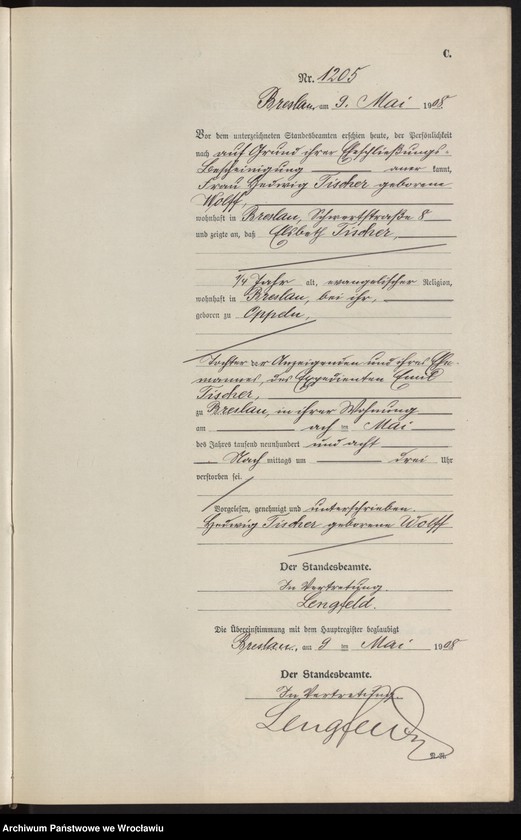 C.
Nr. 1205
Breslau, am 9. Mai 1908.
Vor dem unterzeichneten Standesbeamten erschien heute, der Persönlichkeit
nach auf Grund ihrer Eheschließungs-
bescheinigung aner kannt,
Frau Hedwig Tischer geborene
Wolff,
wohnhaft in Breslau, Schwertstraße 8
und zeigte an, daß Elsbeth Tischer,
3/4 Jahr alt, evangelischer Religion,
wohnhaft in Breslau, bei ihr,
geboren zu Oppeln,
Tochter der Anzeigenden und ihres Ehe-
mannes, des Expedienten Emil
Tischer,
zu Breslau, in ihrer Wohnung
am acht en Mai
des Jahres tausend neunhundert und acht
Nach mittags um drei Uhr
verstorben sei.
Vorgelesen, genehmigt und unterschrieben.
Hedwig Tischer geborene Wolff
Der Standesbeamte.
In Vertretung.
Lengfeld.
Die Übereinstimmung mit dem Hauptregister beglaubigt
Breslau, am 9 ten Mai 1908
Der Standesbeamte.
In Vertretung.
Lengfeld
Archiwum Państwowe we Wrocławiu